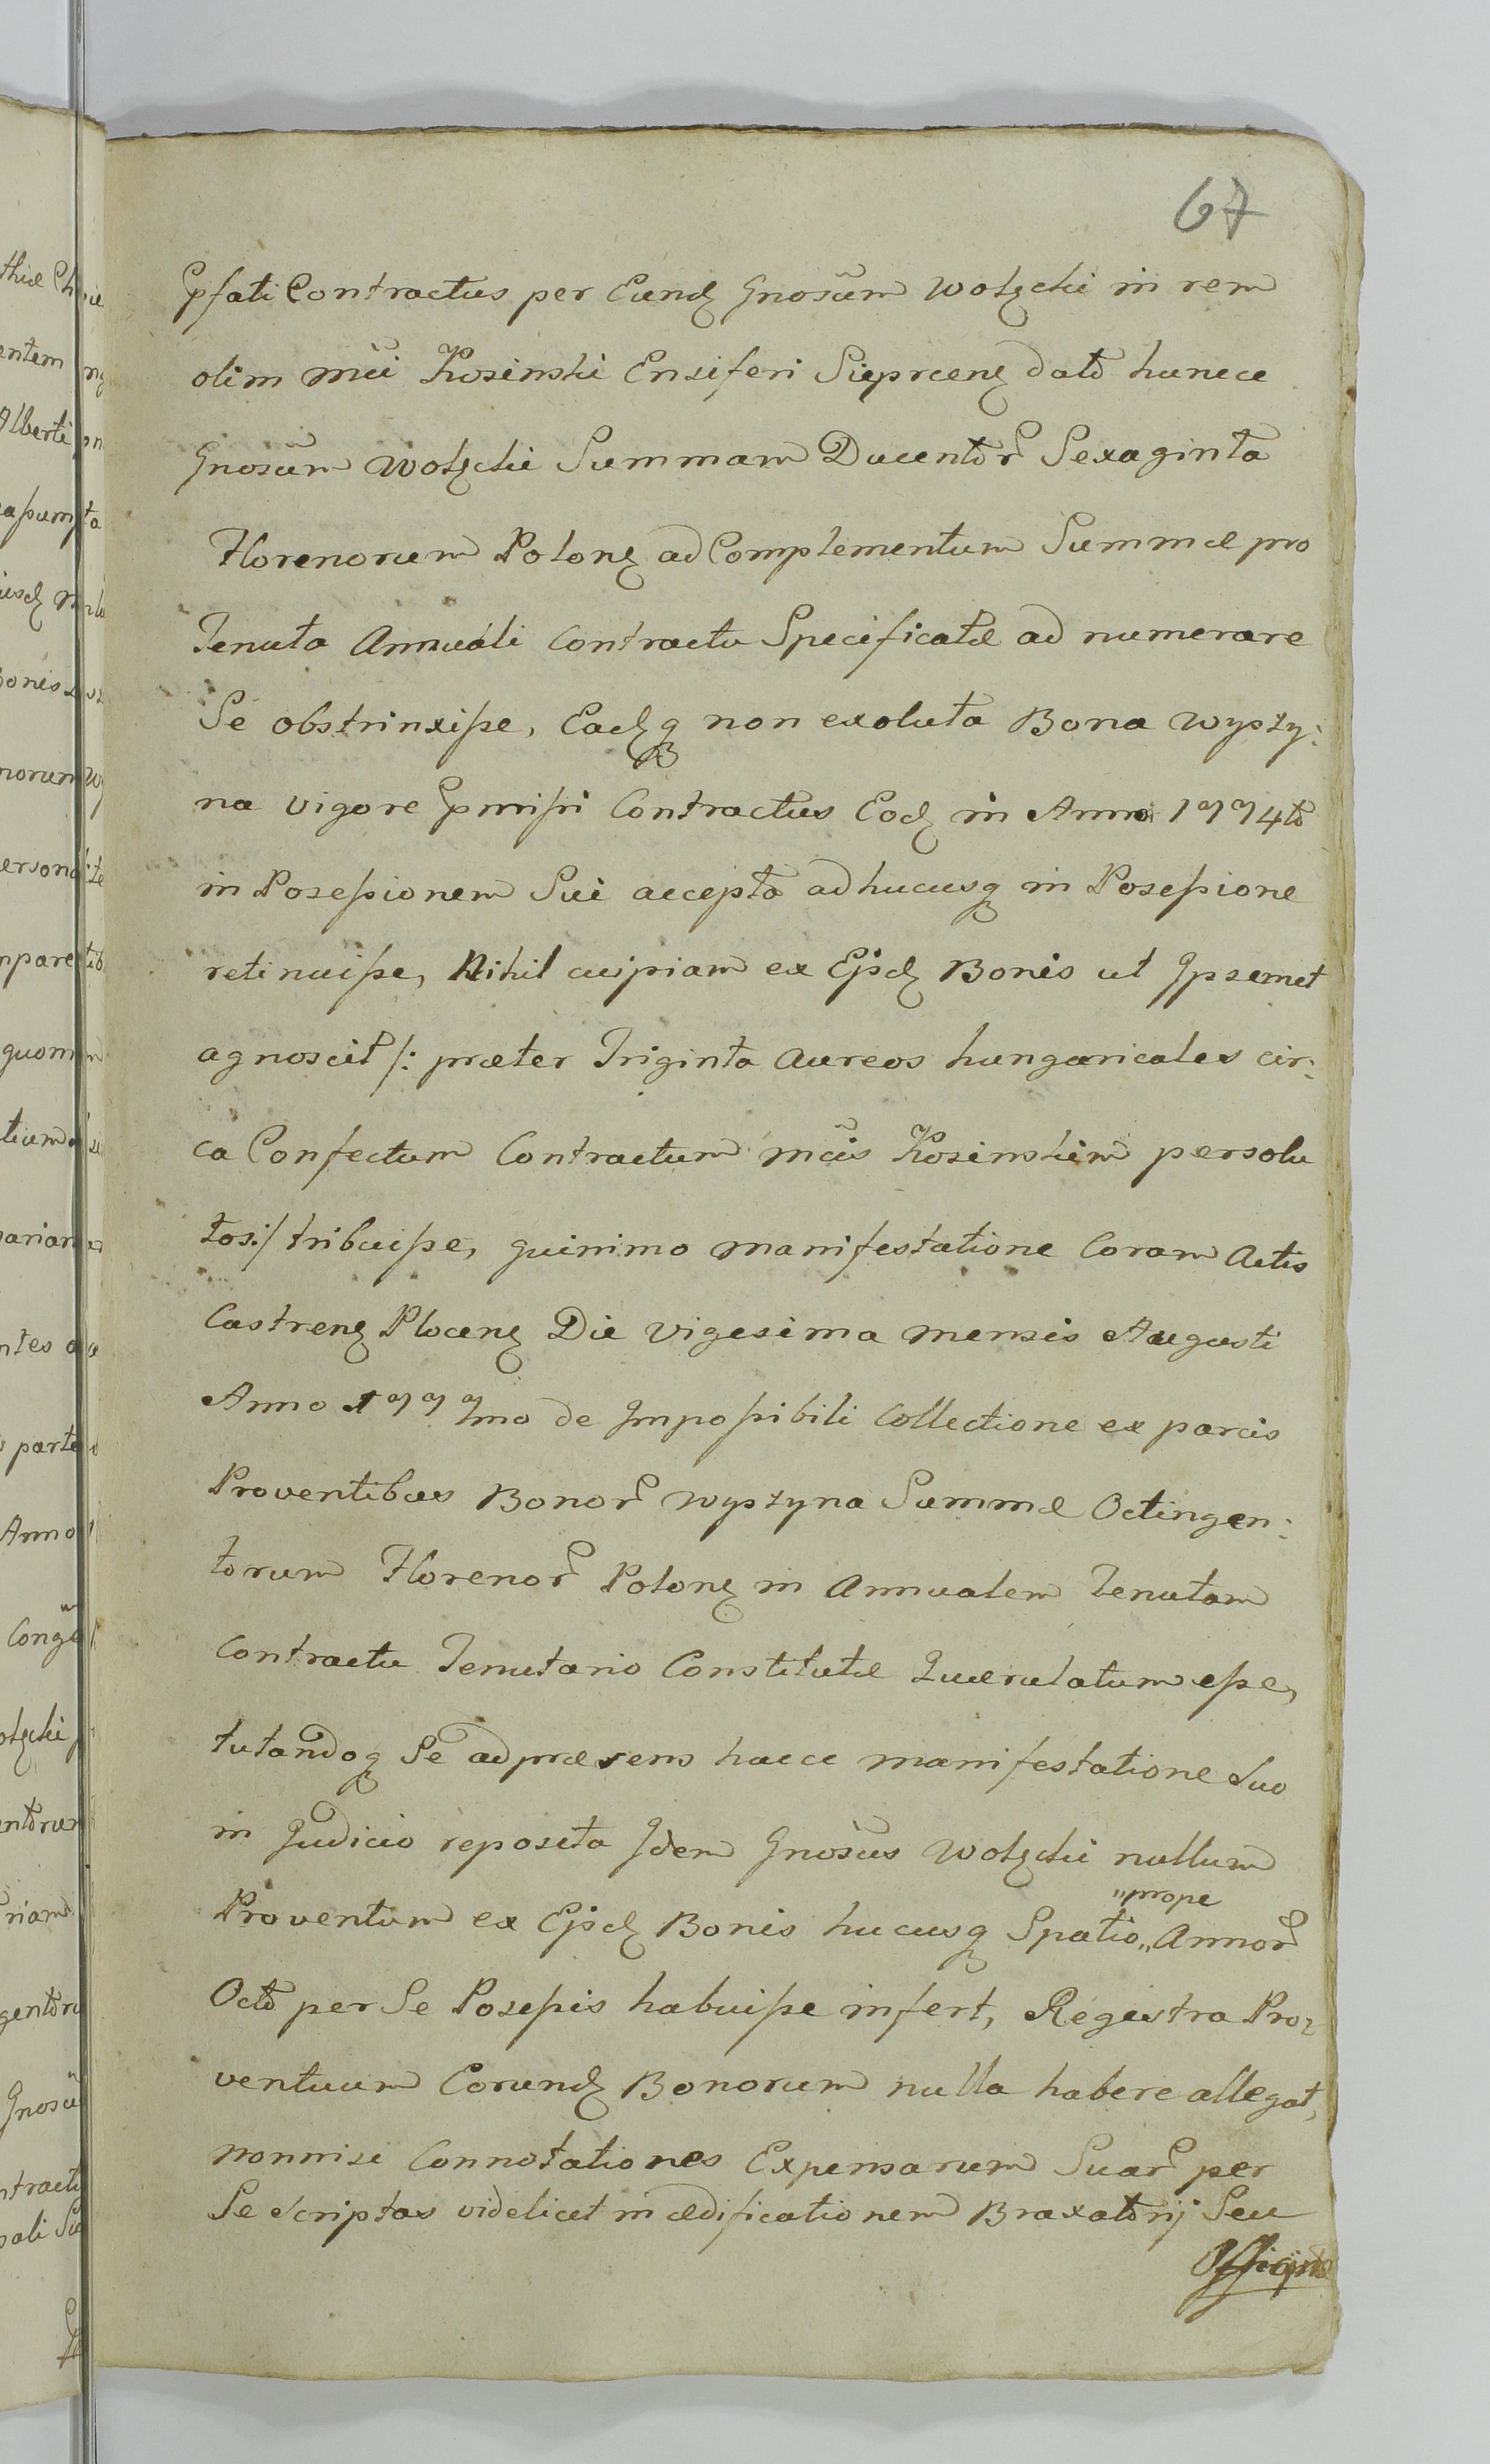 67
Ppsati Contractus per Eund̨ Gnosum̃ Wolędzki in rem
olim Mci Kosinski Ensiferi Sieprceng̨ dato huncce
Gnosum̃ Wolski Summam Ducentor̃ Sexaginta
Florenorum Polonę ad Complementum Summæ pro
Tenuta Annuali Contractu Specificatæ ad numerare
Se obstrinxisse, Eadq̨ non exoluta Bona Wyszy:
na vigore pmissi Contractus Eod̨ in Anno 1774to
in Posessionem Sui accepta adhucusq̨ in Posessione
retinuisse, Nihil cuipiam ex Ejsd̨ Bonis ut Ipsemet
agnoscit /: præter Triginta Aureos hungaricales cir:
ca Confectum Contractum Mcus Kosinskim persolu
tos:/ tribuisse, quinimo manifestatione Coram Actis
Castrenę Plocenę Die vigesima mensis Augusti
Anno 1777mo de Impossibili Collectione ex parcis
Proventibus Bonor̃ Wyszyna Summæ Octingen:
torum Florenor̃ Polonę in Annualem Tenutam
Contractu Tenutario Constitutæ Quærulatum esse,
tutandoq̨ Se ad præsens hacce manifestatione Suo
in Judicio reposita Idem Gnosus Wolski nullum
Proventum ex Ejsd̨ Bonis hucusq̨ Spatio,, "prope Annor̃
Octo per Se Posessis habuisse infert, Regestra Pro:
ventuum Eorund̨ Bonorum nulla habere allegat,
nonnisi Connotationes Expensarum Suar̃ per
Se Scriptas videlicet in ædificationem Braxatorij Seu